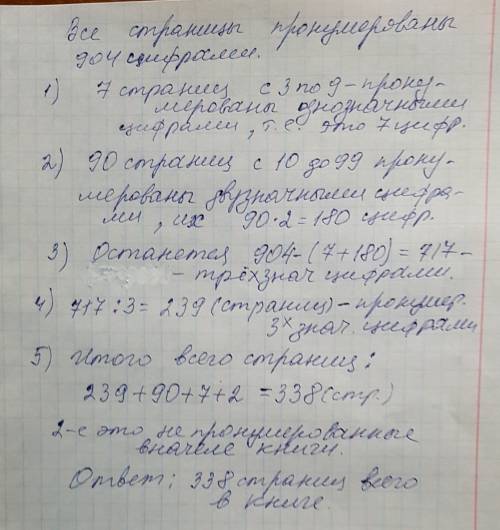 Все страницы пронумерованы
904 цифрами.
1) 7 страниц с 3 по 9 - прону-
мерованы однозначными
цифрами, т.е. это 7 цифр.
2) 90 страниц с 10 до 99 прону-
мерованы двузначными цифра-
ми, их 90·2=180 цифр.
3) Останется 904-(7+180)=717-
- трёхзнач цифрами.
4) 717:3=239 (страниц) - пронумер.
3х знач. цифрами
5) Итого всего страниц:
239+90+7+2 =338(стр.)
2-е это не пронумерованные
вначале книги.
Ответ: 338 страниц всего
в книге.